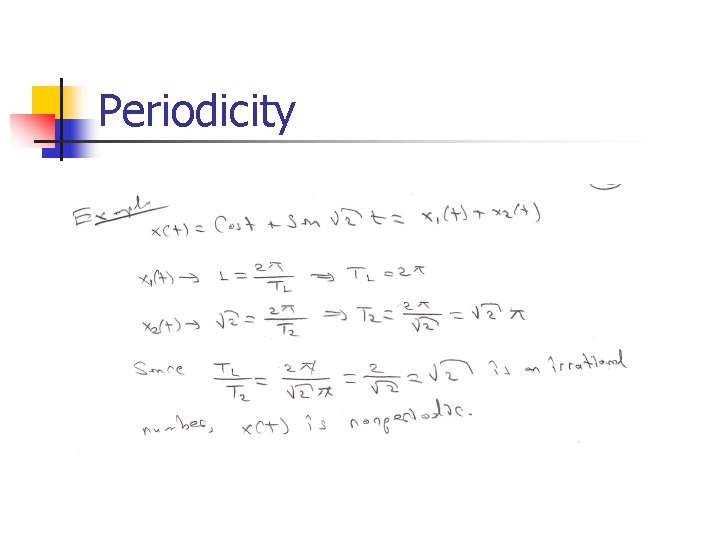 Periodicity
Example
x(t) = Cos t + Sin √2 t = x₁(t) + x₂(t)
x₁(t) → 1 = 2π/T₁ ⇒ T₁ = 2π
x₂(t) → √2 = 2π/T₂ ⇒ T₂ = 2π/√2 = √2 π
Since T₁/T₂ = 2π/√2 π = 2/√2 = √2 is an irrational
number, x(t) is nonperiodic.